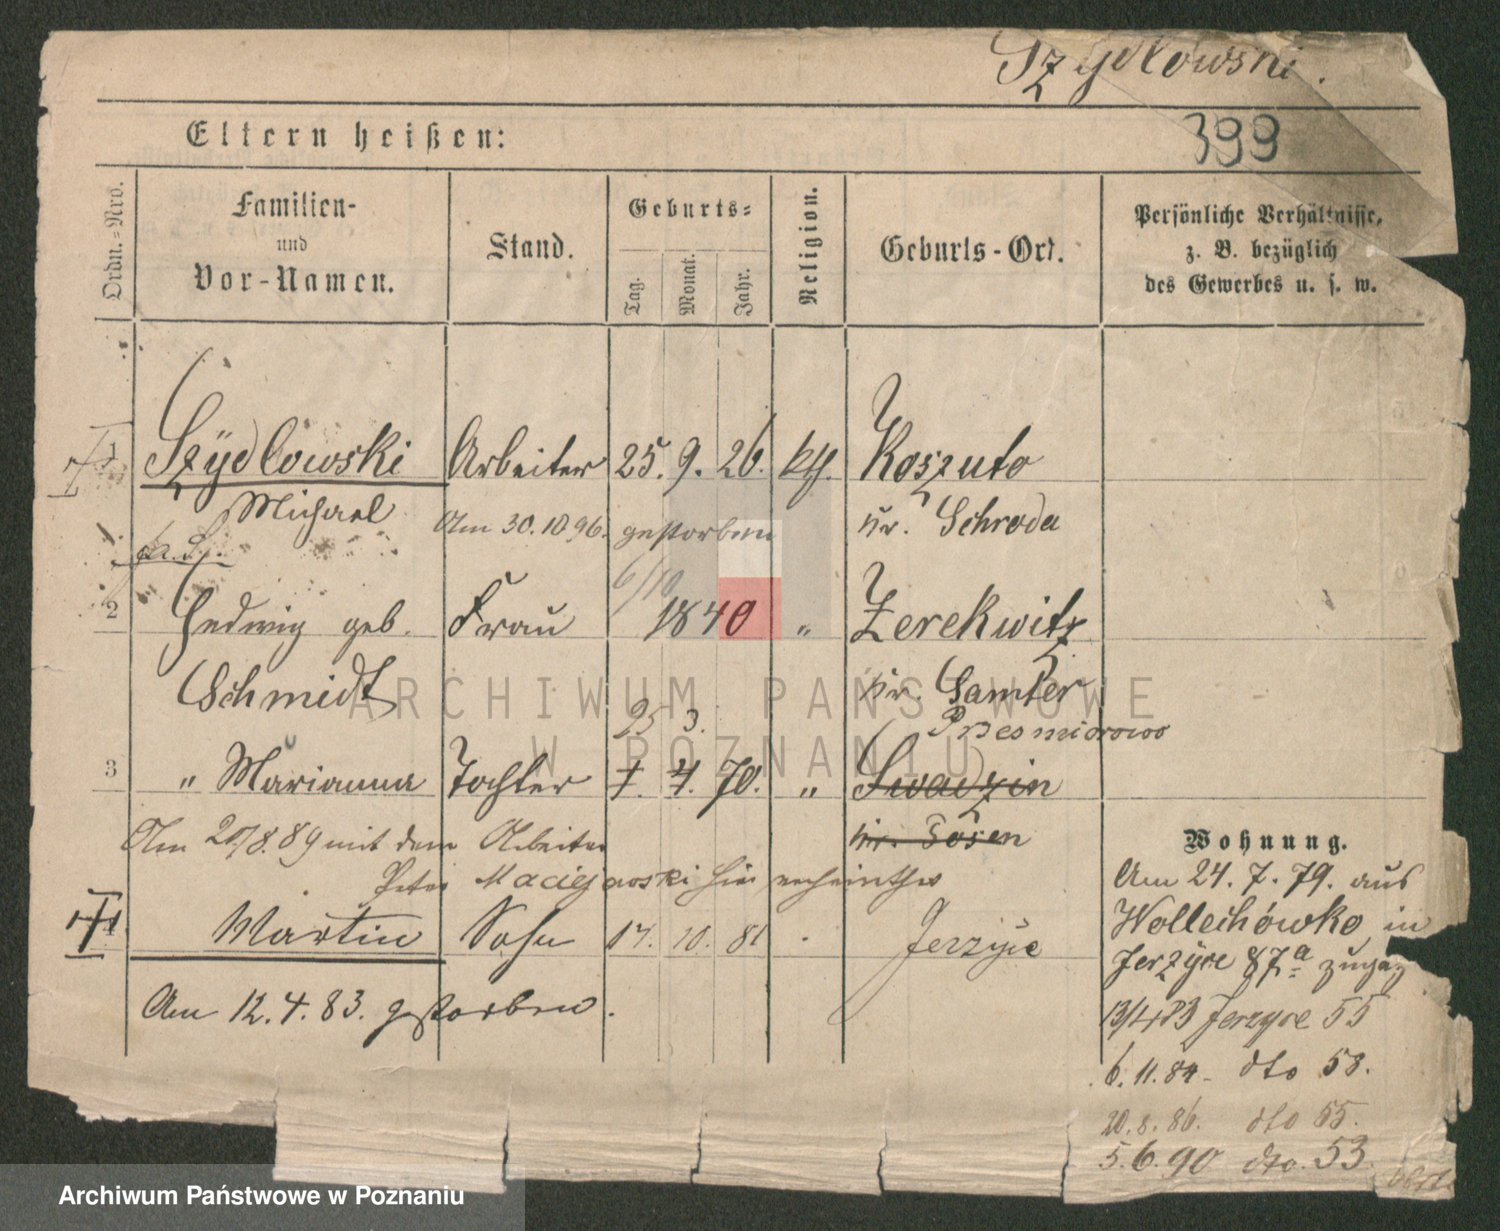 Szydlowski.
399
Eltern heißen:
Ordn.-Nro.
Familien-
und
Vor-Namen.
Stand.
Geburts-
Tag.
Monat.
Jahr.
Religion.
Geburts-Ort.
Persönliche Verhältnisse,
z. B. bezüglich
des Gewerbes u. s. w.
1 Szydlowski Arbeiter 25. 9. 26. kth. Koszuto
Michael Am 30.10.96. gestorben Kr. Schroda
6/10
2 Hedwig geb. Frau 1840 " Zerekwitz
Schmidt Kr. Samter
25 3.
3 " Marianna Tochter 4. 70. " Swadzin
Am 20/8.89 mit dem Arbeiter Kr. Posen
Peter Maciejewski hier
4 Martin Sohn 17. 10. 81 Jerzyce
Am 12.4.83. gestorben.
Wohnung.
Am 24. 7. 79. aus
in
Jerzyce 87a zugez
13/4 83 Jerzyce 55
6. 11. 84 dto 58.
20. 8. 86. dto 55.
5. 6. 90 dto. 53
ARCHIWUM PAŃSTWOWE
W POZNANIU
Archiwum Państwowe w Poznaniu